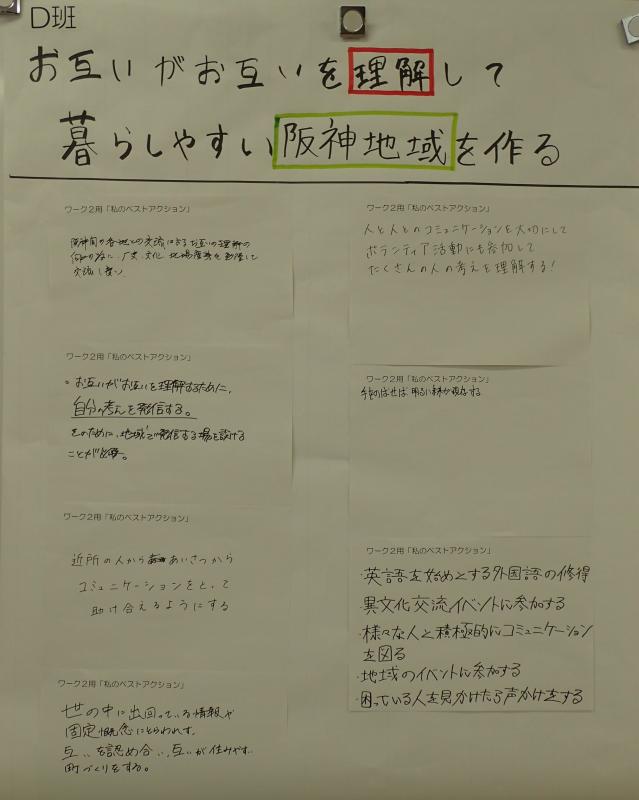 D班
お互いがお互いを理解して
暮らしやすい阪神地域を作る
ワーク2用「私のベストアクション」
阪神間の各地との交流によるお互いの理解の
文化 地場産業を
交流し
ワーク2用「私のベストアクション」
。お互いがお互いを理解するために、
自分の考えを発信する。
そのために、地域で発信する場を設ける
ことが必要。
ワーク2用「私のベストアクション」
近所の人から あいさつから
コミュニケーションをとって
助け合えるようにする
ワーク2用「私のベストアクション」
世の中に出回っている情報や
固定概念にとらわれず、
互いを認め合い、互いが住みやすい
町づくりをする。
ワーク2用「私のベストアクション」
人と人とのコミュニケーションを大切にして
ボランティア活動にも参加して
たくさんの人の考えを理解する！
ワーク2用「私のベストアクション」
手をのばせば 明るい
ワーク2用「私のベストアクション」
・英語を始めとする外国語の修得
・異文化交流イベントに参加する
・様々な人と積極的にコミュニケーション
を図る
・地域のイベントに参加する
・困っている人を見かけたら声かけをする